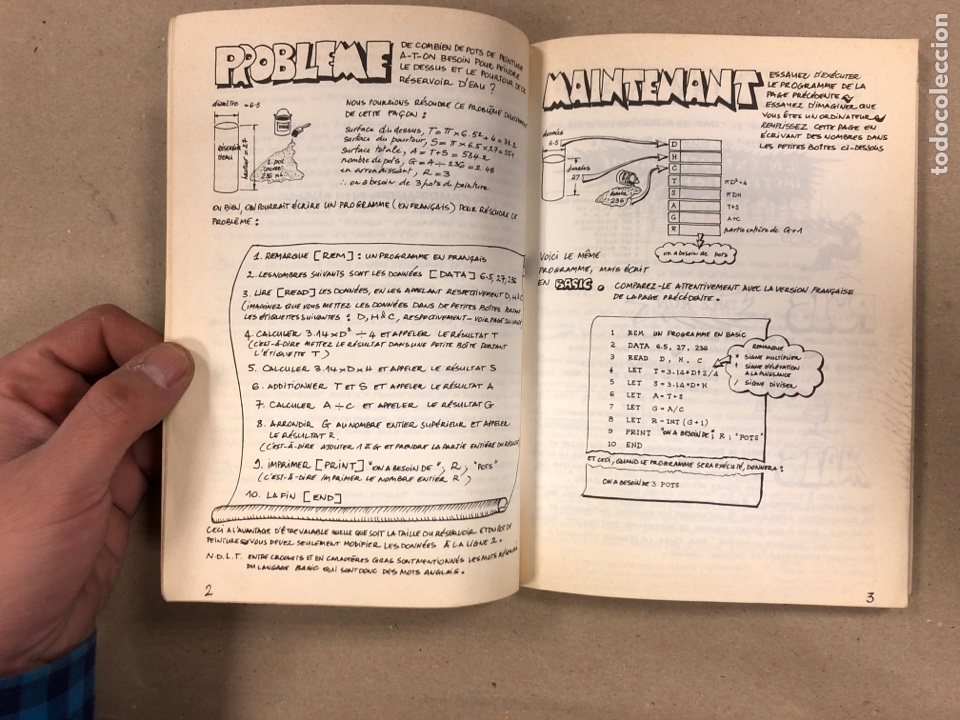 PROBLEME
DE COMBIEN DE POTS DE PEINTURE
A-T-ON BESOIN POUR PEINDRE
LE DESSUS ET LE POURTOUR DE CE
RÉSERVOIR D'EAU ?
diamètre = 6.5
hauteur = 27
1 pot
236
NOUS POURRIONS RÉSOUDRE CE PROBLÈME DIRECTEMENT
DE CETTE FAÇON :
surface du dessus, T = π × 6.5² ÷ 4 = 33.2
surface du pourtour, S = π × 6.5 × 27 = 551
surface totale, A = T + S = 584.2
nombre de pots, G = A ÷ 236 = 2.48
en arrondissant, R = 3
∴ on a besoin de 3 pots de peinture
OU BIEN, ON POURRAIT ÉCRIRE UN PROGRAMME (EN FRANÇAIS) POUR RÉSOUDRE CE
PROBLÈME :
1. REMARQUE [REM] : UN PROGRAMME EN FRANÇAIS
2. LES NOMBRES SUIVANTS SONT LES DONNÉES [DATA] 6.5, 27, 236
3. LIRE [READ] LES DONNÉES, EN LES APPELANT RESPECTIVEMENT D, H & C
(IMAGINEZ QUE VOUS METTEZ LES DONNÉES DANS DE PETITES BOÎTES PORTANT
LES ÉTIQUETTES SUIVANTES : D, H & C, RESPECTIVEMENT - VOIR PAGE SUIVANTE)
4. CALCULER 3.14 × D² ÷ 4 ET APPELER LE RÉSULTAT T
(C'EST-À-DIRE METTEZ LE RÉSULTAT DANS UNE PETITE BOÎTE PORTANT
L'ÉTIQUETTE T)
5. CALCULER 3.14 × D × H ET APPELER LE RÉSULTAT S
6. ADDITIONNER T ET S ET APPELER LE RÉSULTAT A
7. CALCULER A ÷ C ET APPELER LE RÉSULTAT G
8. ARRONDIR G AU NOMBRE ENTIER SUPÉRIEUR ET APPELER
LE RÉSULTAT R.
(C'EST-À-DIRE AJOUTER 1 À G ET PRENDRE LA PARTIE ENTIÈRE DU RÉSULTAT)
9. IMPRIMER [PRINT] "ON A BESOIN DE", R, "POTS"
(C'EST-À-DIRE IMPRIMER LE NOMBRE ENTIER R)
10. LA FIN [END]
CECI A L'AVANTAGE D'ÊTRE VALABLE QUELLE QUE SOIT LA TAILLE DU RÉSERVOIR ET DU POT DE
PEINTURE VOUS DEVEZ SEULEMENT MODIFIER LES DONNÉES À LA LIGNE 2.
N.D.L.T. ENTRE CROCHETS ET EN CARACTÈRES GRAS SONT MENTIONNÉS LES MOTS RÉSERVÉS
DU LANGAGE BASIC QUI SONT DONC DES MOTS ANGLAIS.
2
MAINTENANT
ESSAYEZ D'EXÉCUTER
LE PROGRAMME DE LA
PAGE PRÉCÉDENTE
ESSAYEZ D'IMAGINER QUE
VOUS ÊTES UN ORDINATEUR
REMPLISSEZ CETTE PAGE EN
ÉCRIVANT DES NOMBRES DANS
LES PETITES BOÎTES CI-DESSOUS
données
6.5
27
données
236
D
H
C
T πD²÷4
S πDH
A T+S
G A÷C
R partie entière de G+1
on a besoin de pots
VOICI LE MÊME
PROGRAMME, MAIS ÉCRIT
EN BASIC. COMPAREZ-LE ATTENTIVEMENT AVEC LA VERSION FRANÇAISE
DE LA PAGE PRÉCÉDENTE.
1 REM UN PROGRAMME EN BASIC
2 DATA 6.5, 27, 236
3 READ D, H, C
4 LET T=3.14*D↑2/4
5 LET S=3.14*D*H
6 LET A=T+S
7 LET G=A/C
8 LET R=INT(G+1)
9 PRINT "ON A BESOIN DE"; R; "POTS"
10 END
REMARQUE
* SIGNE MULTIPLIER
↑ SIGNE D'ÉLÉVATION
A LA PUISSANCE
/ SIGNE DIVISER
ET CECI, QUAND LE PROGRAMME SERA EXÉCUTÉ, DONNERA :
ON A BESOIN DE 3 POTS
3
todocoleccion